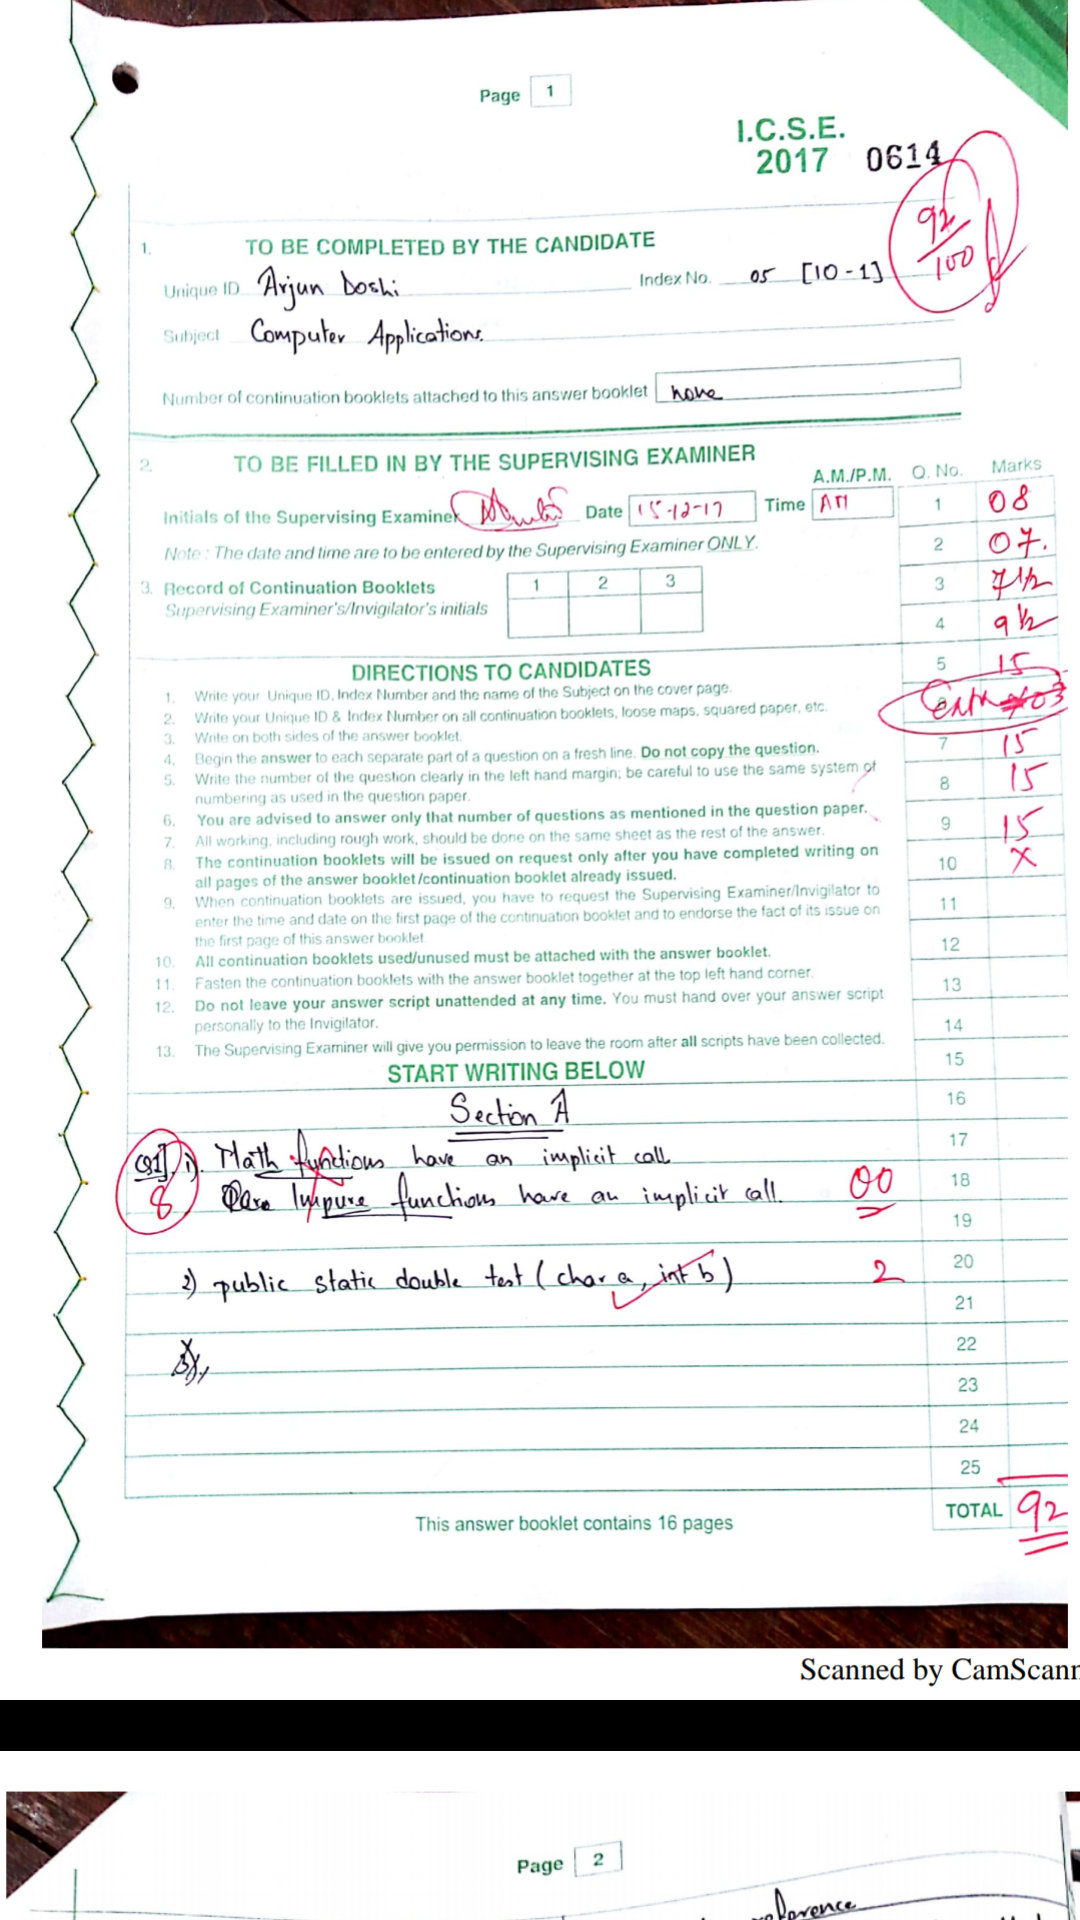 Page 1
I.C.S.E.
2017 0614
92/100
1. TO BE COMPLETED BY THE CANDIDATE
Unique ID Arjun Doshi Index No. 05 [10-1]
Subject Computer Applications.
Number of continuation booklets attached to this answer booklet none
2. TO BE FILLED IN BY THE SUPERVISING EXAMINER
A.M./P.M. Q. No. Marks
Initials of the Supervising Examiner Date 15-12-17 Time AM
Note : The date and time are to be entered by the Supervising Examiner ONLY.
3. Record of Continuation Booklets 1 2 3
Supervising Examiner's/Invigilator's initials
1 08
2 07.
3 7 1/2
4 9 1/2
5 15
03
7 15
8 15
9 15
10 X
11
12
13
14
15
16
17
18
19
20
21
22
23
24
25
TOTAL 92
DIRECTIONS TO CANDIDATES
1. Write your Unique ID, Index Number and the name of the Subject on the cover page.
2. Write your Unique ID & Index Number on all continuation booklets, loose maps, squared paper, etc.
3. Write on both sides of the answer booklet.
4. Begin the answer to each separate part of a question on a fresh line. Do not copy the question.
5. Write the number of the question clearly in the left hand margin; be careful to use the same system of
numbering as used in the question paper.
6. You are advised to answer only that number of questions as mentioned in the question paper.
7. All working, including rough work, should be done on the same sheet as the rest of the answer.
8. The continuation booklets will be issued on request only after you have completed writing on
all pages of the answer booklet/continuation booklet already issued.
9. When continuation booklets are issued, you have to request the Supervising Examiner/Invigilator to
enter the time and date on the first page of the continuation booklet and to endorse the fact of its issue on
the first page of this answer booklet
10. All continuation booklets used/unused must be attached with the answer booklet.
11. Fasten the continuation booklets with the answer booklet together at the top left hand corner.
12. Do not leave your answer script unattended at any time. You must hand over your answer script
personally to the Invigilator.
13. The Supervising Examiner will give you permission to leave the room after all scripts have been collected.
START WRITING BELOW
Section A
Q1] 1). Math functions have an implicit call
8 Impure functions have an implicit call. 00
2) public static double test ( char a, int b ) 2
This answer booklet contains 16 pages
Scanned by CamScann
Page 2